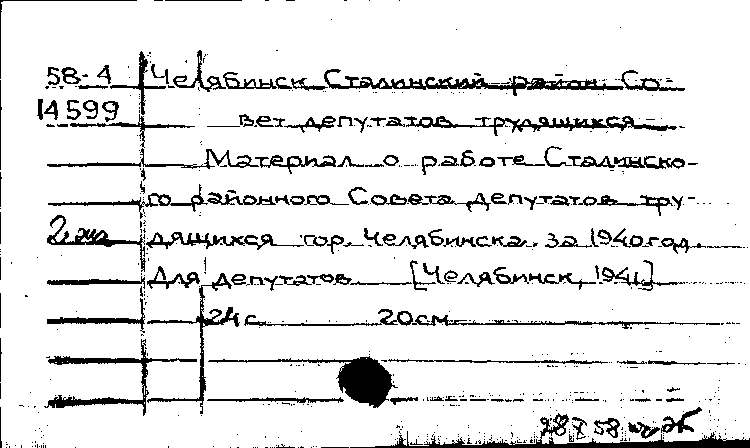 58-4 Челябинск Сталинский район. Со-
14599 вет депутатов трудящихся
Материал о работе Сталинско-
го районного Совета депутатов тру-
2 экз дящихся гор. Челябинска за 1940 год.
Для депутатов [Челябинск, 1941]
24 с. 20 см
28 X 58